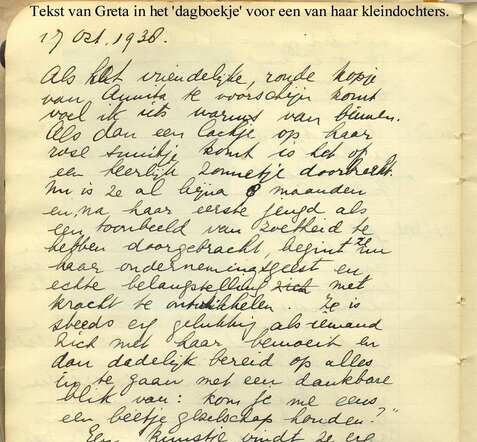 Tekst van Greta in het 'dagboekje' voor een van haar kleindochters.
17 Oct. 1938.
Als het vriendelijke, ronde kopje
van Annita te voorschijn komt
voel ik iets warms van binnen.
Als dan een lachje op haar
rose snuitje komt is het of
een heerlijk zonnetje doorbreekt.
Nu is ze al bijna 6 maanden
en, na haar eerste jeugd als
een toonbeeld van zoetheid te
hebben doorgebracht, begint ze nu
haar ondernemingsgeest en
echte belangstelling zich met
kracht te ontwikkelen. Ze is
steeds erg gelukkig als iemand
zich met haar bemoeit en
dan dadelijk bereid op alles
in te gaan met een dankbare
blik van: kom je me eens
een beetje gezelschap houden?"
Een kunstje vindt ze erg